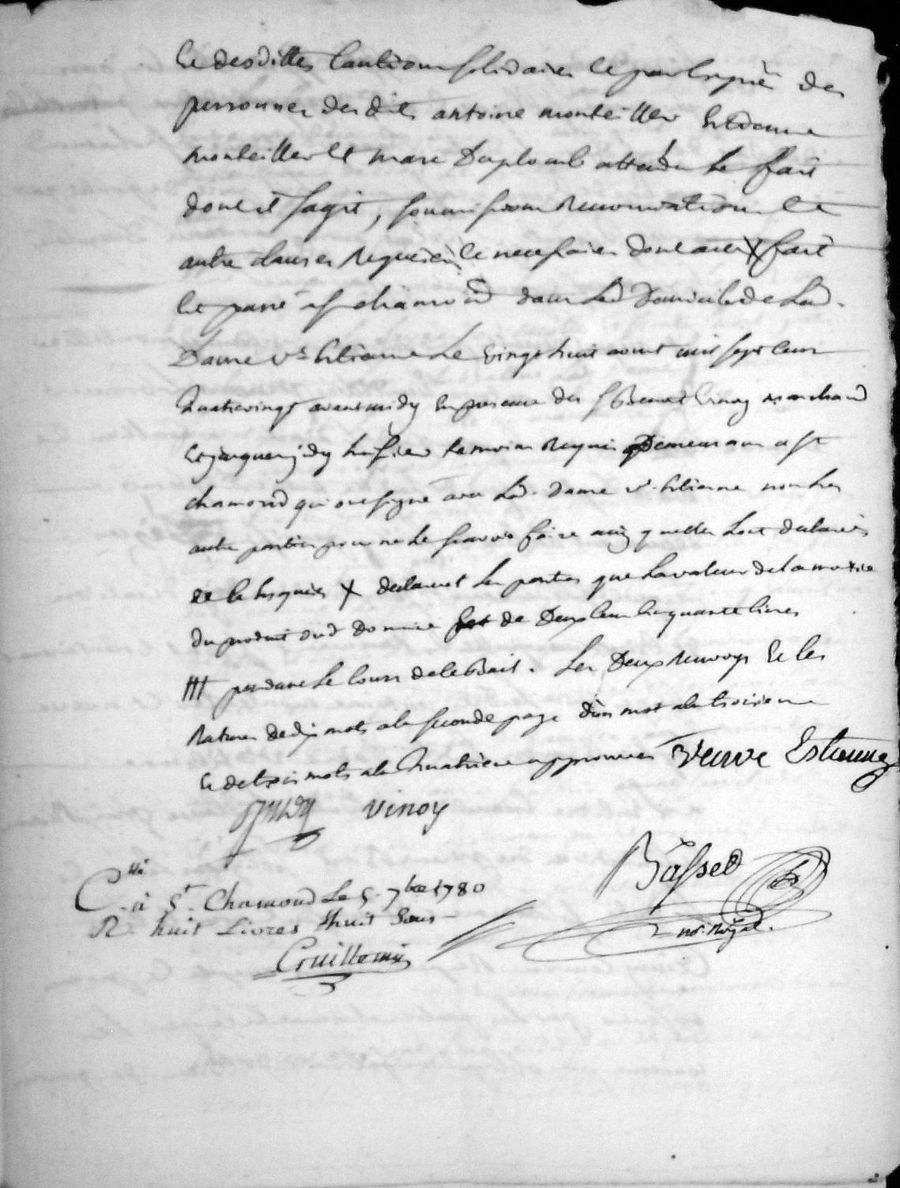 et desdittes Cautions solidaires et par Corps des
personnes desdits antoine monteiller Estienne
monteiller et marc Duplomb attendu le fait
dont il sagit, soumission Renonciation et
autre clauses Requises et necessaires dont acte X fait
et passé a St chamond dans le Domicile de lad.
Dame Ve Estienne le vingt huit aout mil sept cent
Quatrevingt avant midy En presence des Srs Vinoy marchand
et judy huissier temoins Requis Demeurant a St
chamond qui ont signé avec lad. Dame Ve Estienne non les
autre parties pour ne le sçavoir faire ainsy quelles lont declarés
de ce Enquises X declarent les parties que la valeur de la moitié
du produit dud Domaine Est de Deux Cent Cinquante livres
pendant le Cours de ce Bail. Les Deux Renvoys Et les
Ratures de dix mots a la seconde page d'un mot a la troisieme
et de trois mots a la Quatrieme approuvées Veuve Estienne
Vinoy
Basset
not. Royal.
C.lé à St Chamond Le 5 7bre 1780
R. huit Livres huit sous